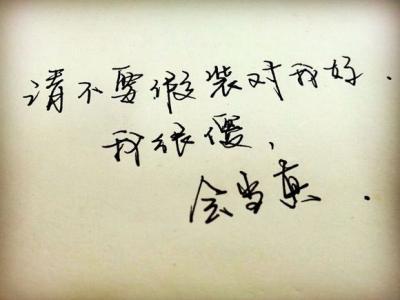 请不要假装对我好.
我很傻,
会当真.